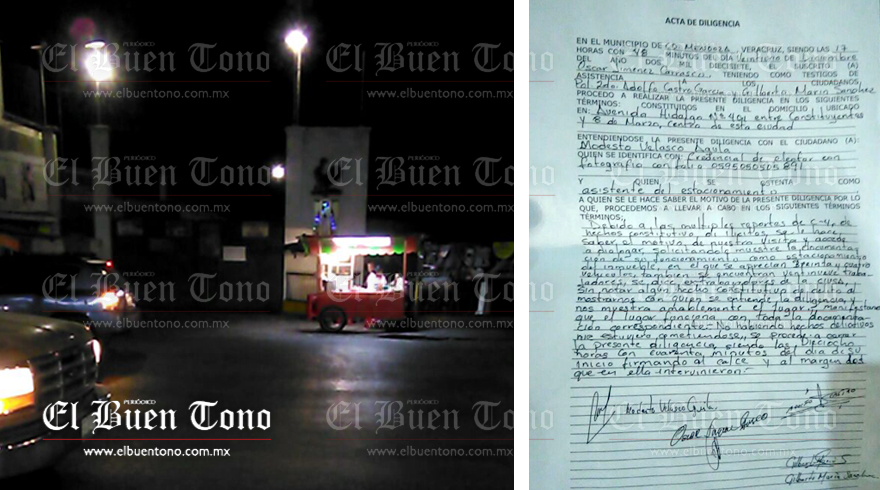 PERIÓDICO
El Buen Tono
www.elbuentono.com.mx
ACTA DE DILIGENCIA
EN EL MUNICIPIO DE CD. MENDOZA, VERACRUZ, SIENDO LAS 17
HORAS CON 48 MINUTOS DEL DIA
DEL AÑO DOS MIL DIECISIETE, EL SUSCRITO (A)
Oscar Jimenez Carrasco, TENIENDO COMO TESTIGOS DE
ASISTENCIA A LOS CIUDADANOS,
Pol 2do. Adolfo Castro Garcia y Gilberto Marin Sanchez
PROCEDO A REALIZAR LA PRESENTE DILIGENCIA EN LOS SIGUIENTES
TÉRMINOS: CONSTITUIDOS EN EL DOMICILIO UBICADO
EN: Avenida Hidalgo Nº 401 entre Constituyentes
y 8 de Marzo, centro de esta ciudad
ENTENDIENDOSE LA PRESENTE DILIGENCIA CON EL CIUDADANO (A):
Modesto Velasco Aguila
QUIEN SE IDENTIFICA CON: Credencial de elector con
fotografia con folio
Y QUIEN SE OSTENTA COMO
asistente del estacionamiento
A QUIEN SE LE HACE SABER EL MOTIVO DE LA PRESENTE DILIGENCIA POR LO
QUE, PROCEDEMOS A LLEVAR A CABO EN LOS SIGUIENTES TÉRMINOS
TÉRMINOS:
Debido a las multiples reportes de C-4, de
hechos constitutivo de ilicitos, se le hace
saber el motivo de nuestra visita y accede
a dialogar, solicitandole muestre la documenta
cion de su funcionamiento como estacionamiento
del inmueble, en el que se aprecian treinta y cuatro
vehiculos, tambien se encuentran ventinueve traba-
jadores, se dice, extrabajadores de la
sin notar algun hecho constitutivo de delito al
mostrarnos con quien se entiende la diligencia y
nos muestra amablemente el lugar, y manifestando
que el lugar funciona con toda la documenta
ción correspondiente.- No habiendo hechos delictivos
que estuviera cometiendose, se procede a cerrar
la presente diligencia, siendo las Dieciocho
horas con cuarenta minutos del dia de su
inicio firmando al calce y al margen los
que en ella intervinieron.-
Modesto Velasco Aguila
Gilberto Marin S.
Gilberto Marin Sanchez